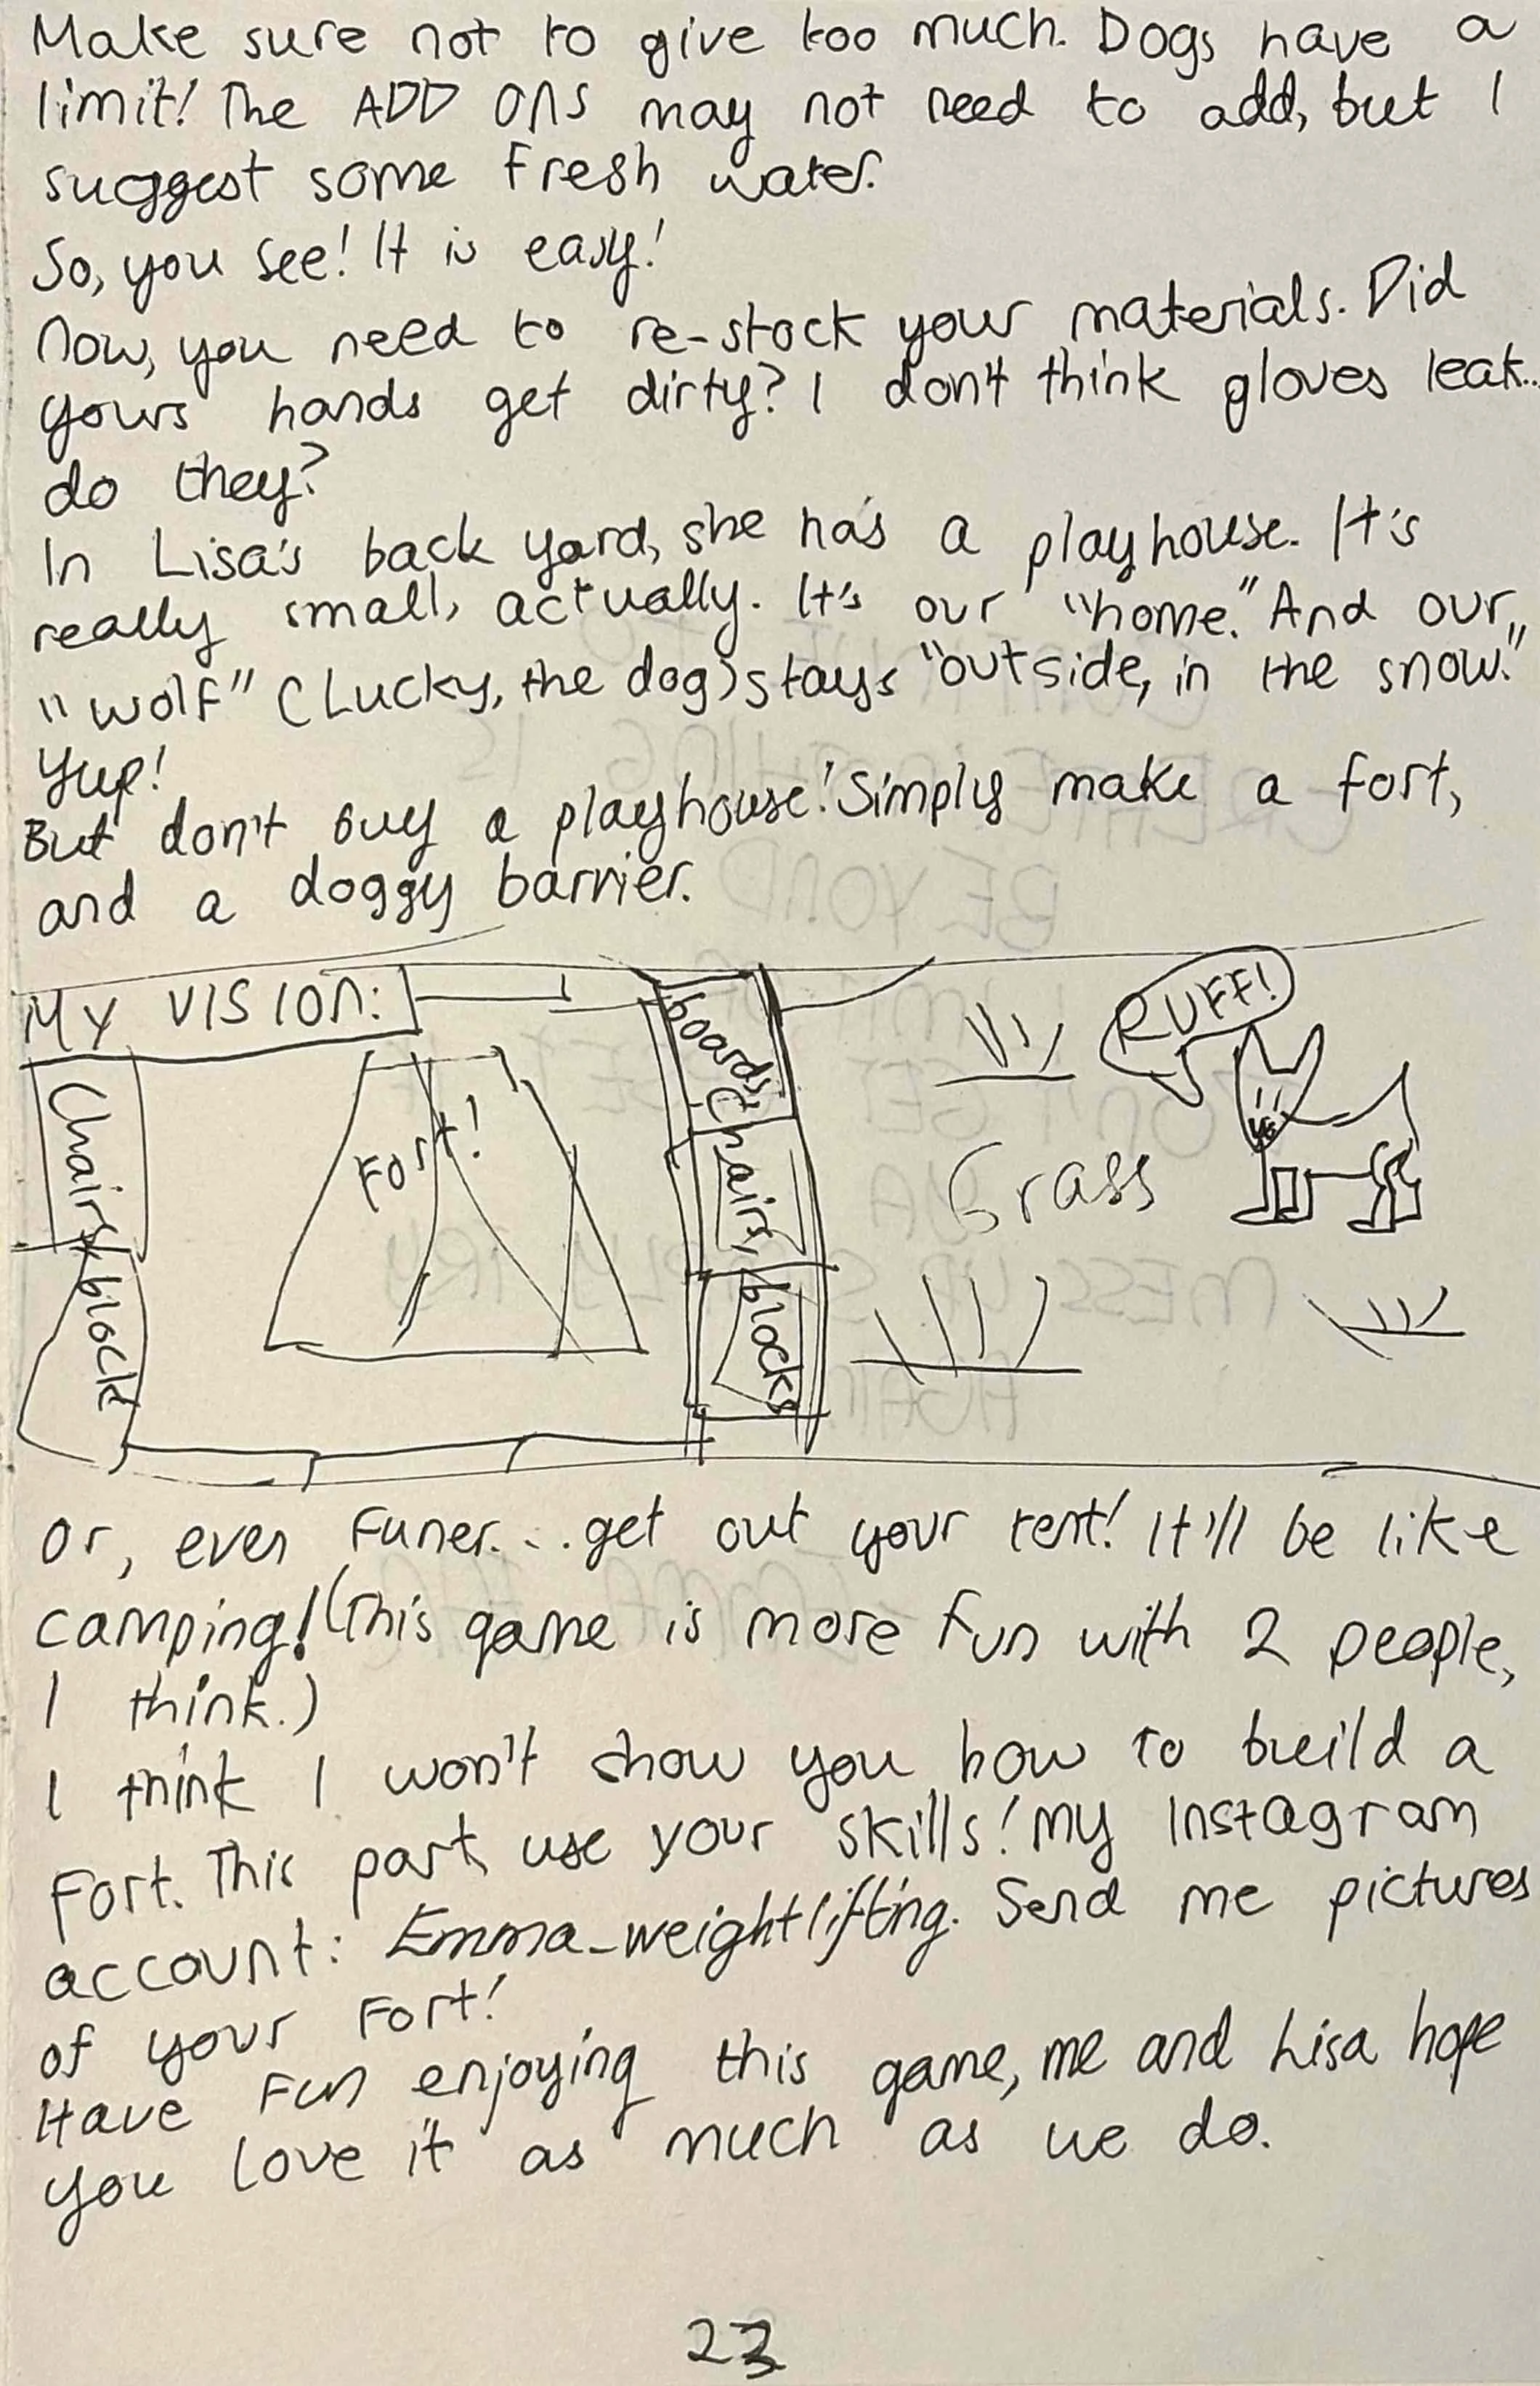 Make sure not to give too much. Dogs have a
limit! The ADD ONS may not need to add, but I
suggest some fresh water.
So, you see! It is easy!
Now, you need to re-stock your materials. Did
yours hands get dirty? I don't think gloves leak...
do they?
In Lisa's back yard, she has a playhouse. It's
really small, actually. It's our "home." And our
"wolf" (Lucky, the dog) stays "outside, in the snow."
Yup!
But don't buy a playhouse! Simply make a fort,
and a doggy barrier.
MY VISION:
Chairs
block
Fort!
boards,
Chairs,
blocks
Grass
RUFF!
Or, even Funer... get out your tent! It'll be like
camping! (This game is more fun with 2 people,
I think.)
I think I won't show you how to build a
Fort. This part, use your skills! My Instagram
account: Emma_weightlifting. Send me pictures
of your Fort!
Have Fun enjoying this game, me and Lisa hope
you love it as much as we do.
23